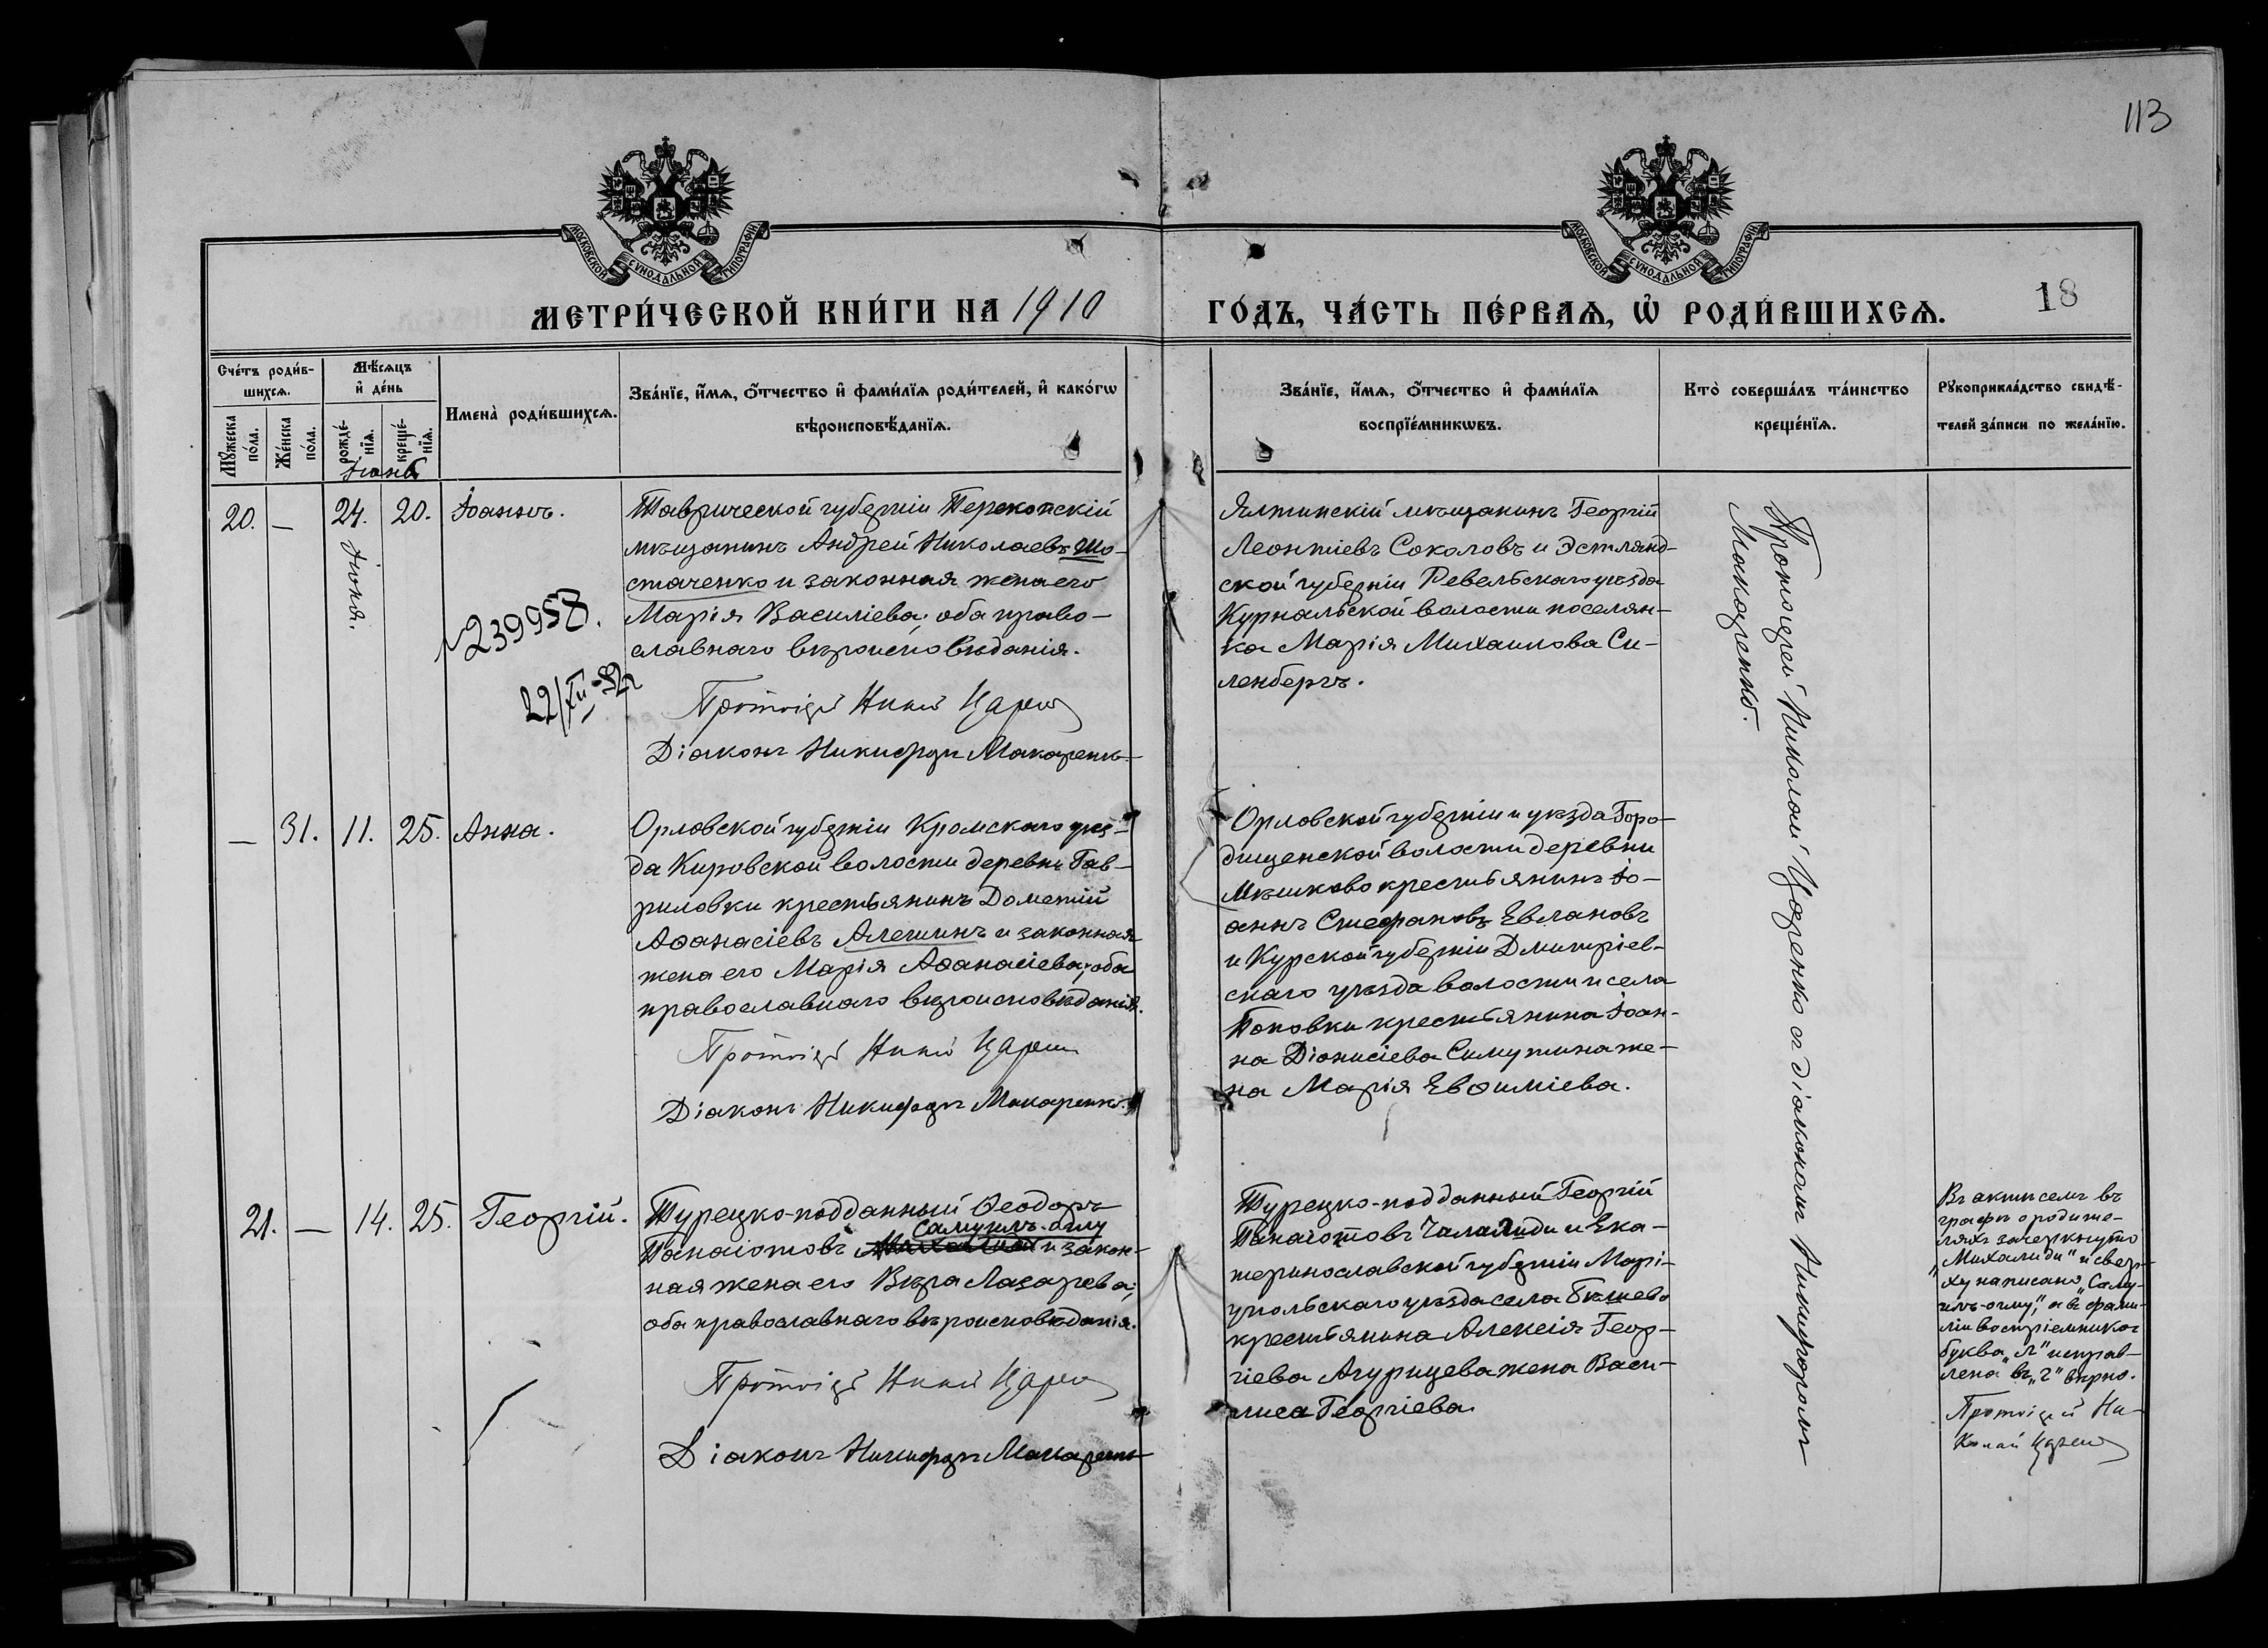 113
МОСКОВСКОЙ СУНОДАЛЬНОЙ ТИПОГРАФІИ
МОСКОВСКОЙ СУНОДАЛЬНОЙ ТИПОГРАФІИ
18
МЕТРИ́ЧЕСКОЙ КНИ́ГИ НА 1910
ГО́ДЪ, ЧА́СТЬ ПЕ́РВАѦ, Ѡ҆ РОДИ́ВШИХСѦ.
Сче́тъ роди́в-
шихсѧ.
Мꙋ́жеска
по́ла.
Же́нска
по́ла.
Мѣ́сѧцъ
и҆ де́нь
рожде́-
нїѧ.
креще́-
нїѧ.
Імена̀ роди́вшихсѧ.
Зва́нїе, и҆́мѧ, ѻ҆́тчество и҆ фами́лїѧ роди́телей, и҆ како́гѡ
вѣроисповѣ́данїѧ.
Зва́нїе, и҆́мѧ, ѻ҆́тчество и҆ фами́лїѧ
воспрїе́мникѡвъ.
Кто̀ соверша́лъ та́инство
креще́нїѧ.
Рꙋкоприкла́дство свидѣ́-
телей за́писи по жела́нїю.
Іюнь
20.
—
24.
Іюня.
20.
Іоаннъ.
№239958.
Таврической губерніи Перекопскій
мѣщанинъ Андрей Николаевъ Шо-
стаченко и законная жена его
Марія Василіева; оба право-
славнаго вѣроисповѣданія.
Діаконъ Никифоръ Макаренко
Ялтинскій мѣщанинъ Георгій
Леонтіевъ Соколовъ и Эстлянд-
ской губерніи Ревельскаго уѣзда
Курнальской волости поселян-
ка Марія Михаилова Си-
ленбергъ.
Протоіерей Николай Царенко съ діакономъ Никифоромъ
Макаренко.
—
31.
11.
25.
Анна.
Орловской губерніи Кромскаго уѣз-
да Кировской волости деревни Гав-
риловки крестьянинъ Дометій
Аѳанасіевъ Алешинъ и законная
жена его Марія Аѳанасіева; оба
православнаго вѣроисповѣданія.
Діаконъ Никифоръ Макаренко
Орловской губерніи и уѣзда Горо-
дищенской волости деревни
Мѣшково крестьянинъ Іо-
аннъ Стефановъ Евлановъ
и Курской губерніи Дмитріев-
скаго уѣзда волости и села
Поповки крестьянина Іоан-
на Діонисіева Симутина же-
на Марія Евѳиміева.
21.
—
14.
25.
Георгій.
Турецко-подданный Ѳеодоръ
Самуилъ-оглу
Панаіотовъ Михалиди и закон-
ная жена его Вѣра Лазарева;
оба православнаго вѣроисповѣданія.
Діаконъ Никифоръ Макаренко
Турецко-подданный Георгій
Панаіотовъ Чалалиди и Ека-
теринославской губерніи Марі-
упольскаго уѣзда села Бѣшево
крестьянина Алексія Геор-
гіева Агурицева жена Васи-
лиса Георгіева.
Въ актѣ семъ въ
графѣ о родите-
ляхъ зачеркнуто
„Михалиди" и свер-
ху написано „Саму-
илъ-оглу", а въ фами-
ліи воспріемника
буква „л" исправ-
лена въ „г" вѣрно.
Протоіерей Ни-
колай Царенко